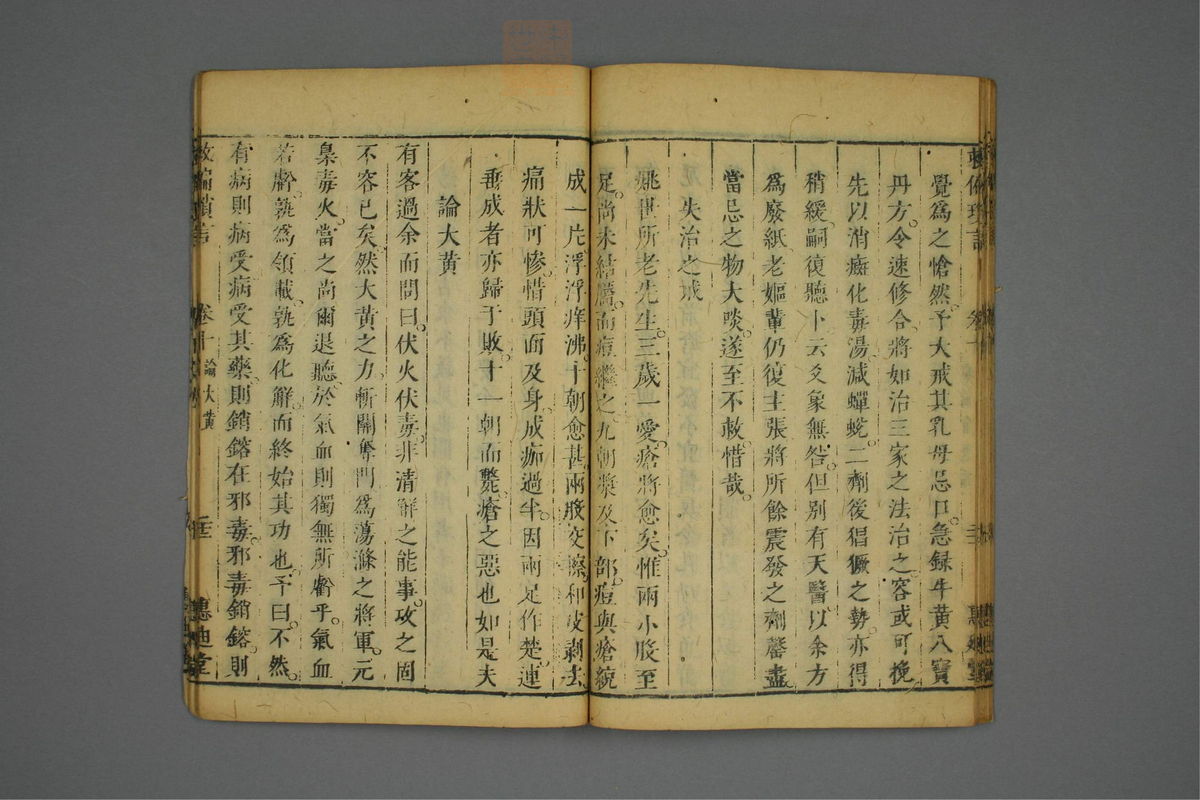 覺爲之愴然予大戒其乳母忌口急録牛黃八寶
丹方令速修合將如治三家之法治之容或可挽
先以消癍化毒湯減蟬蛻二劑後猖獗之勢亦得
稍緩嗣復聽卜云爻象無咎但別有天醫以余方
爲廢紙老嫗輩仍復主張將所餘震發之劑罄盡
當忌之物大啖遂至不救惜哉
失治之戒
姚世所老先生三歲一愛瘡將愈矣惟兩小股至
足尚未結靨而痘繼之九朝漿及下部痘與瘡統
成一片浮浮痒沸十朝愈甚兩股交擦和皮剥去
痛狀可慘惜頭面及身成痂過半因兩足作楚連
垂成者亦歸于敗十一朝而斃瘡之惡也如是夫
論大黄
有客過余而問曰伏火伏毒非清解之能事攻之固
不容已矣然大黄之力斬關奪門爲蕩滌之將軍元
梟毒火當之尚爾退聽於氣血則獨無所虧乎氣血
若虧孰爲領載孰爲化解而終始其功也予曰不然
有病則病受病受其藥則銷鎔在邪毒邪毒銷鎔則
卷十 論大黄 惠迪堂